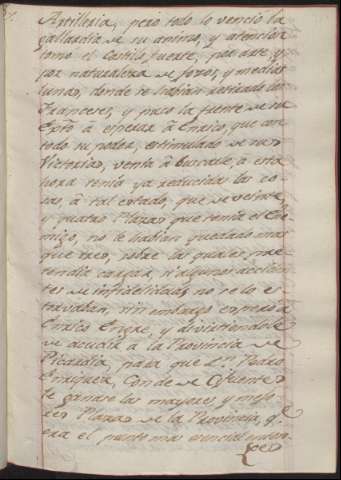 Artilleria, pero todo lo venció la
gallardia de su animo, y atencion
tomó el Castillo fuerte, por arte, y
por naturaleza de fosos, y medias
lunas, donde se habian retirado los
Franceses, y puso la fuente de su
Expto â esperar â Enrico, que con
todo su poder, estimulado de sus
Victorias, venia â buscarle, â esta
hora tenía ya reducidas las co-
sas, â tal estado, que de veinte,
y quatro Plazas que tenia el Ene-
migo, no le habian quedado mas
que tres, sobre las quales pre-
tendia cargar, si algunos acciden-
tes de infidelidad, no se lo es-
torvaban, sin embargo esperó â
Enrico, y divirtiendole
se acudia â la Provincia de
Picardia, para que Dn. Pedro
Enriquez, Conde de Cifuentes
le ganase las mayores, y mejo-
res Plazas de la Provincia, qe.
era el punto mas esencial